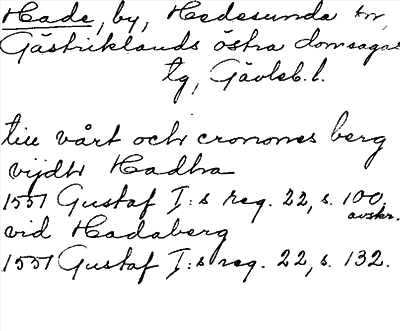 Hade, by, Hedesunda sn,
Gästriklands östra domsagas
tg, Gävleb. l.
till vårt och cronones berg
vijdh Hadha
1551 Gustaf I:s reg. 22, s. 100.
avskr.
vid Hadaberg
1551 Gustaf I:s reg. 22, s. 132.